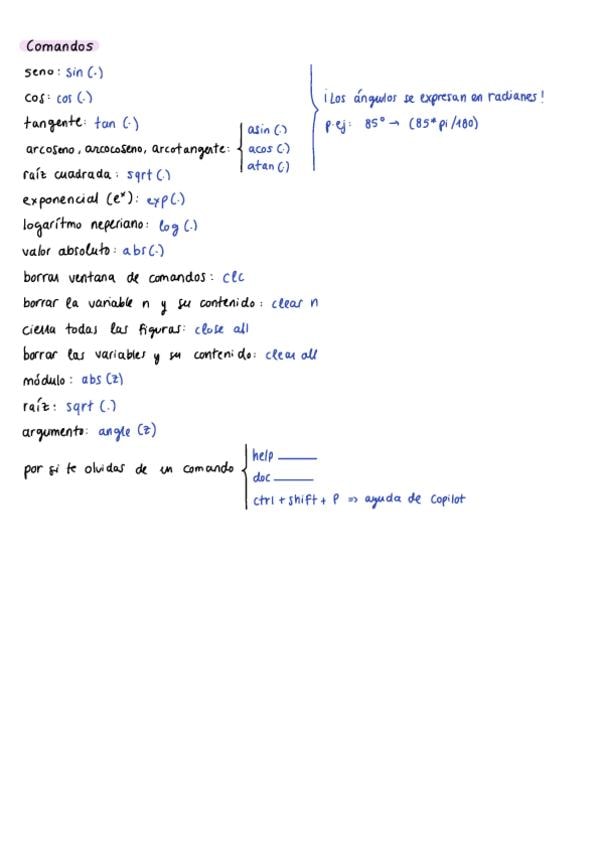 Comandos
seno: sin (·)
cos: cos (·)
tangente: tan (·)
arcoseno, arcocoseno, arcotangente: asin (·)
acos (·)
atan (·)
¡Los ángulos se expresan en radianes!
p.ej: 85° → (85*pi/180)
raíz cuadrada: sqrt (·)
exponencial (eˣ): exp (·)
logarítmo neperiano: log (·)
valor absoluto: abs (·)
borrar ventana de comandos: clc
borrar la variable n y su contenido: clear n
cierra todas las figuras: close all
borrar las variables y su contenido: clear all
módulo: abs (z)
raíz: sqrt (·)
argumento: angle (z)
por si te olvidas de un comando
help ____
doc ____
ctrl + shift + P => ayuda de Copilot